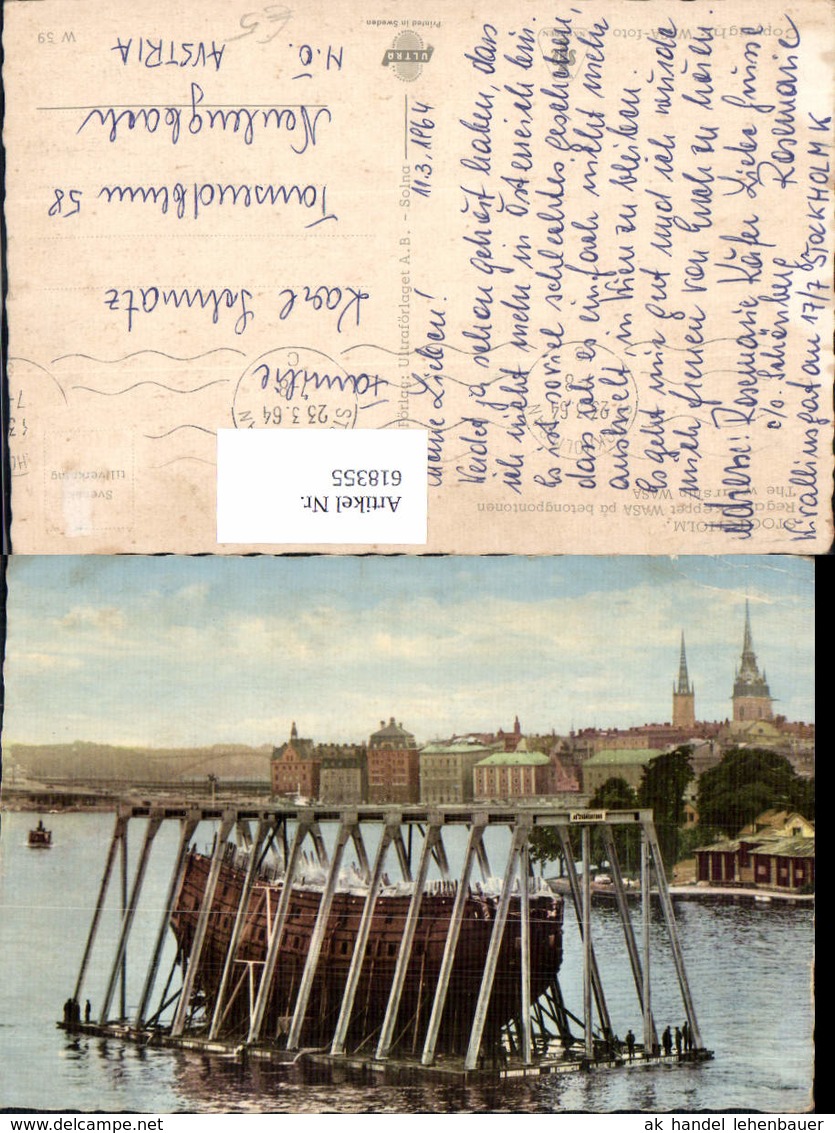 STOCKHOLM.
Regalskeppet WASA på betongpontonen
The warship WASA
11.3.1964
Meine Lieben!
Werdet ja schon gehört haben, dass
ich nicht mehr in Österreich bin.
Es ist soviel schlechtes geschehen,
dass ich es einfach nicht mehr
aushielt in Wien zu bleiben.
Es geht mir gut und ich würde
mich freuen von Euch zu hören.
Adresse: Rosemarie Käfer Liebe Gruss
c/o. Schönberg Rosemarie
17/7 STOCKHOLM K
Förlag: Ultraförlaget A.B. - Solna
ULTRA
Printed in Sweden
Copyright: WSA-foto
W 59
Svensk
tillverkning
23.3.64
23.3.64
Familie
Karl Schmatz
58
Neulengbach
N.Ö.
AUSTRIA
Artikel Nr.
618355
ak handel lehenbauer